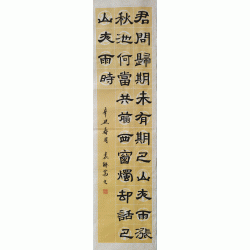 君問歸期未有期巴山夜雨漲
秋池何當共剪西窗燭却話巴
山夜雨時
辛丑